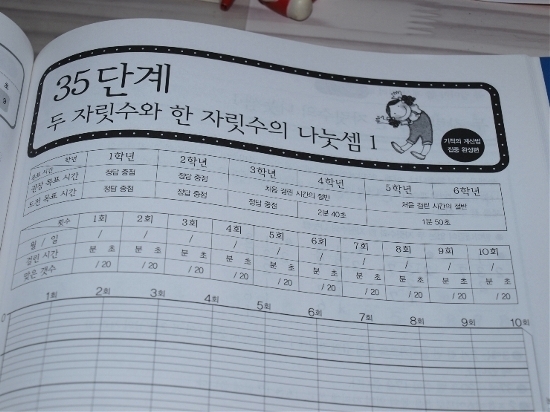 35단계
두 자릿수와 한 자릿수의 나눗셈 1
기적의 계산법
집중 완성편
학년 1학년 2학년 3학년 4학년 5학년 6학년
권장 목표 시간 정답 중점 정답 중점 처음 걸린 시간의 절반 처음 걸린 시간의 절반
도전 목표 시간 정답 중점 정답 중점 정답 중점 2분 40초 1분 50초
횟수 1회 2회 3회 4회 5회 6회 7회 8회 9회 10회
월 / 일 / / / / / / / / / /
걸린 시간 분 초 분 초 분 초 분 초 분 초 분 초 분 초 분 초 분 초 분 초
맞은 갯수 / 20 / 20 / 20 / 20 / 20 / 20 / 20 / 20 / 20 / 20
1회 2회 3회 4회 5회 6회 7회 8회 9회 10회